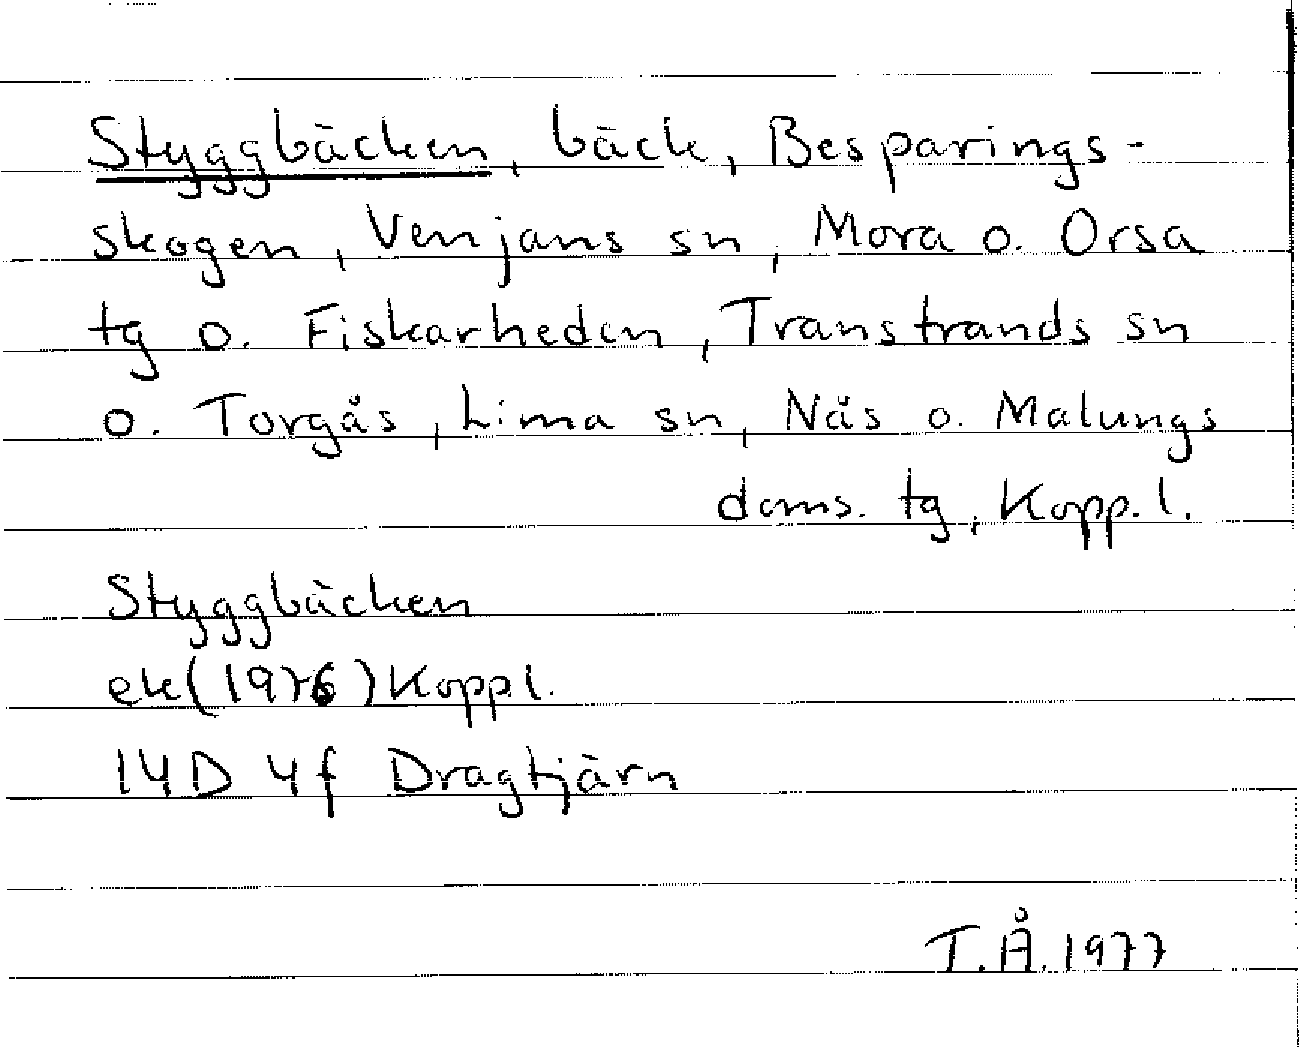 Styggbäcken, bäck, Besparings-
skogen, Venjans sn, Mora o. Orsa
tg o. Fiskarheden, Transtrands sn
o. Torgås, Lima sn, Näs o. Malungs
doms. tg, Kopp. l.
Styggbäcken
ek (1976) Koppl.
14D 4f Dragtjärn
T.Å. 1977